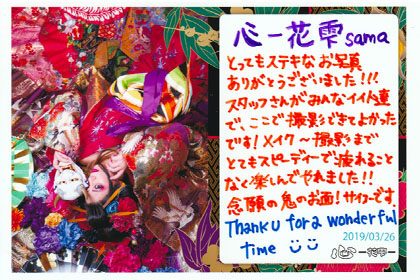 心－花雫 sama
とってもステキなお写真
ありがとうございました!!!
スタッフさんがみんなイイ人達
で、ここで撮影できてよかった
です!メイク〜撮影まで
とてもスピーディーで疲れること
なく楽しんでやれました!!
念願の鬼のお面!サイコーです。
Thank U for a wonderful
time
2019/03/26
心－花雫－